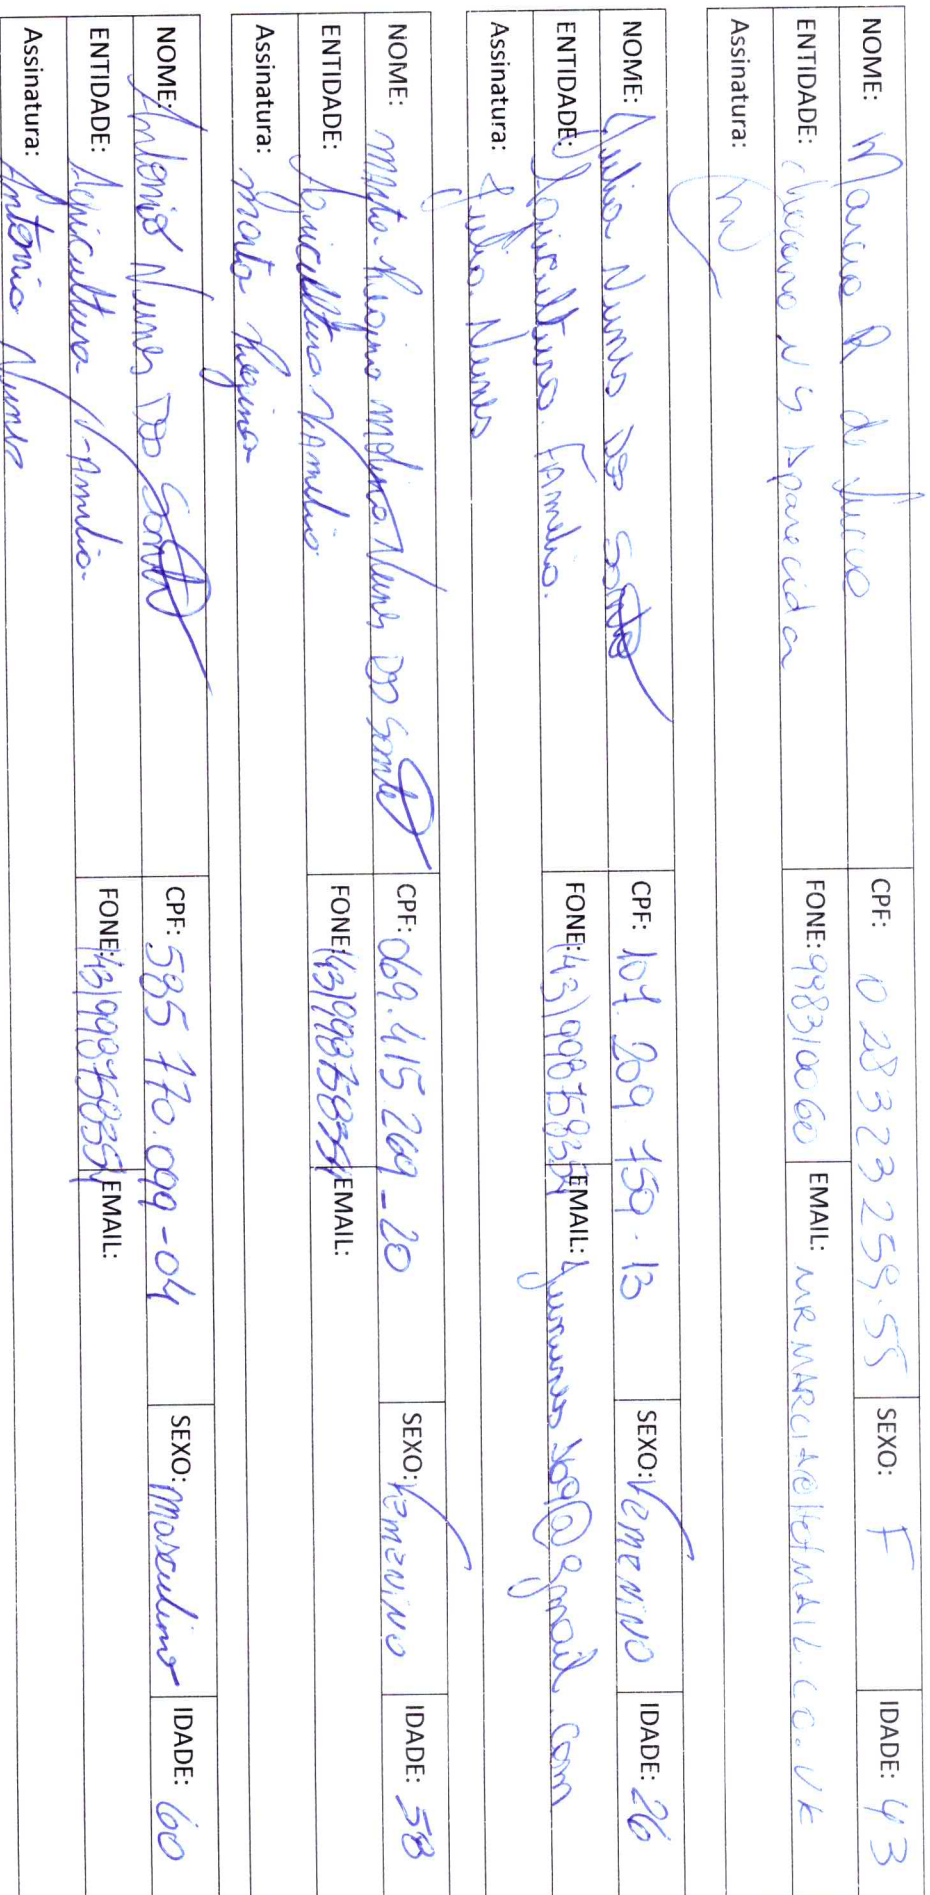 NOME: Marcia R de CPF: 028323259.55 SEXO: F IDADE: 43
ENTIDADE: Chacara N S Aparecida FONE: 99831 0060 EMAIL: MRMARCIAR@HOTMAIL.CO.UK
Assinatura:
NOME: Julia Nunes DOS Santos CPF: 107.209 759.13 SEXO: Femenino IDADE: 26
ENTIDADE: Agricultura Familia. FONE: (43) 998758354 EMAIL: @gmail.com
Assinatura: Julia Nunes
NOME: Marta Regina Molina Nunes DOS Santos CPF: 069.415.269_20 SEXO: Femenino IDADE: 58
ENTIDADE: Agricultura Familia FONE: (43) 998758354 EMAIL:
Assinatura: Marta Regina
NOME: Antonio Nunes DOS Santos CPF: 585 770.099-04 SEXO: Masculino IDADE: 60
ENTIDADE: Agricultura Familia. FONE: (43) 998758354 EMAIL:
Assinatura: Antonio Nunes